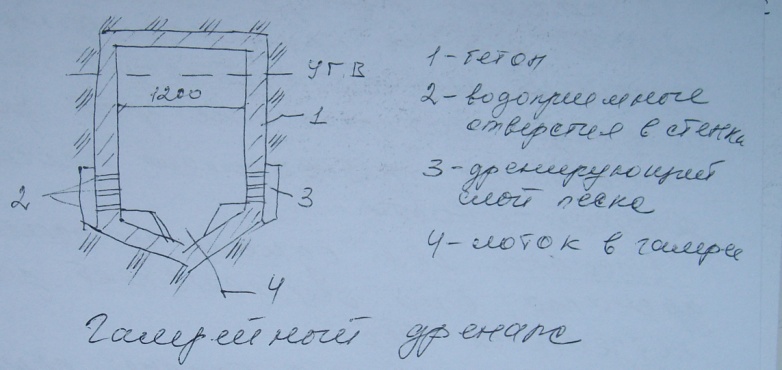 УГ.В
1200
1
2
3
4
1 - бетон
2 - водоприемные
отверстия в стенки
3 - дренирующий
слой песка
4 - лоток в галереи
Галерейный дренаж